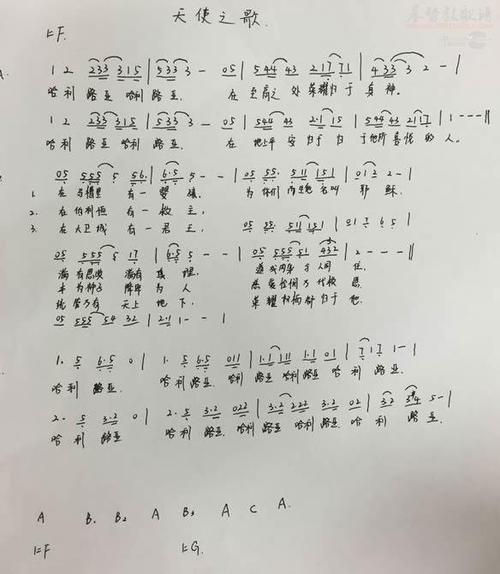 基督教歌谱
天使之歌
1=F.
1 2 233 315 | 533 3 - 05 | 544 43 217 71 | 433 3 2 - |
哈利 路亚 哈利 路亚. 在 至高之 处 荣耀归于 真神.
1 2 233 315 | 533 3 - 05 | 544 43 2·1 15 | 544 43 217 | 1 --- ||
哈利 路亚 哈利 路亚. 在 地上平安归于 归于他所喜悦的人.
05 555 5 5 56 | 6·5 5 - - | 05 55 511 151 | 01 2 2 - |
1. 在 马槽里 有一 婴孩, 为你们而生他名叫 耶稣.
2. 在伯利恒 有一 救主,
3. 在大卫城 有一 君王, 05 55 511 151 | 01 7 6 5 |
05 555 5 17 | 6·5 5 - - | 05 555 51 432 | 2 ---- ||
满有恩典 满有 真理. 道成肉身 于人间 住.
本为神子 降卑 为 人
统管万有 天上 地下. 荣耀权柄都归于 他.
05 555 54 32 | 2·1 1 - - |
1· 5 6·5 0 | 1· 5 6·5 011 | 1·1 111 1·1 01 | 7 1 7 1 - |
哈利 路亚 哈利路亚. 哈利 路亚 哈利路亚 哈利 路亚.
2· 5 3·2 0 | 2· 5 3·2 022 | 3·2 222 3·2 02 | 3 2 3 #4 5 - |
哈利 路亚 哈利路亚. 哈利 路亚 哈利路亚. 哈利 路亚.
A B₁ B₂ A B₃ A C A.
1=F 1=G.